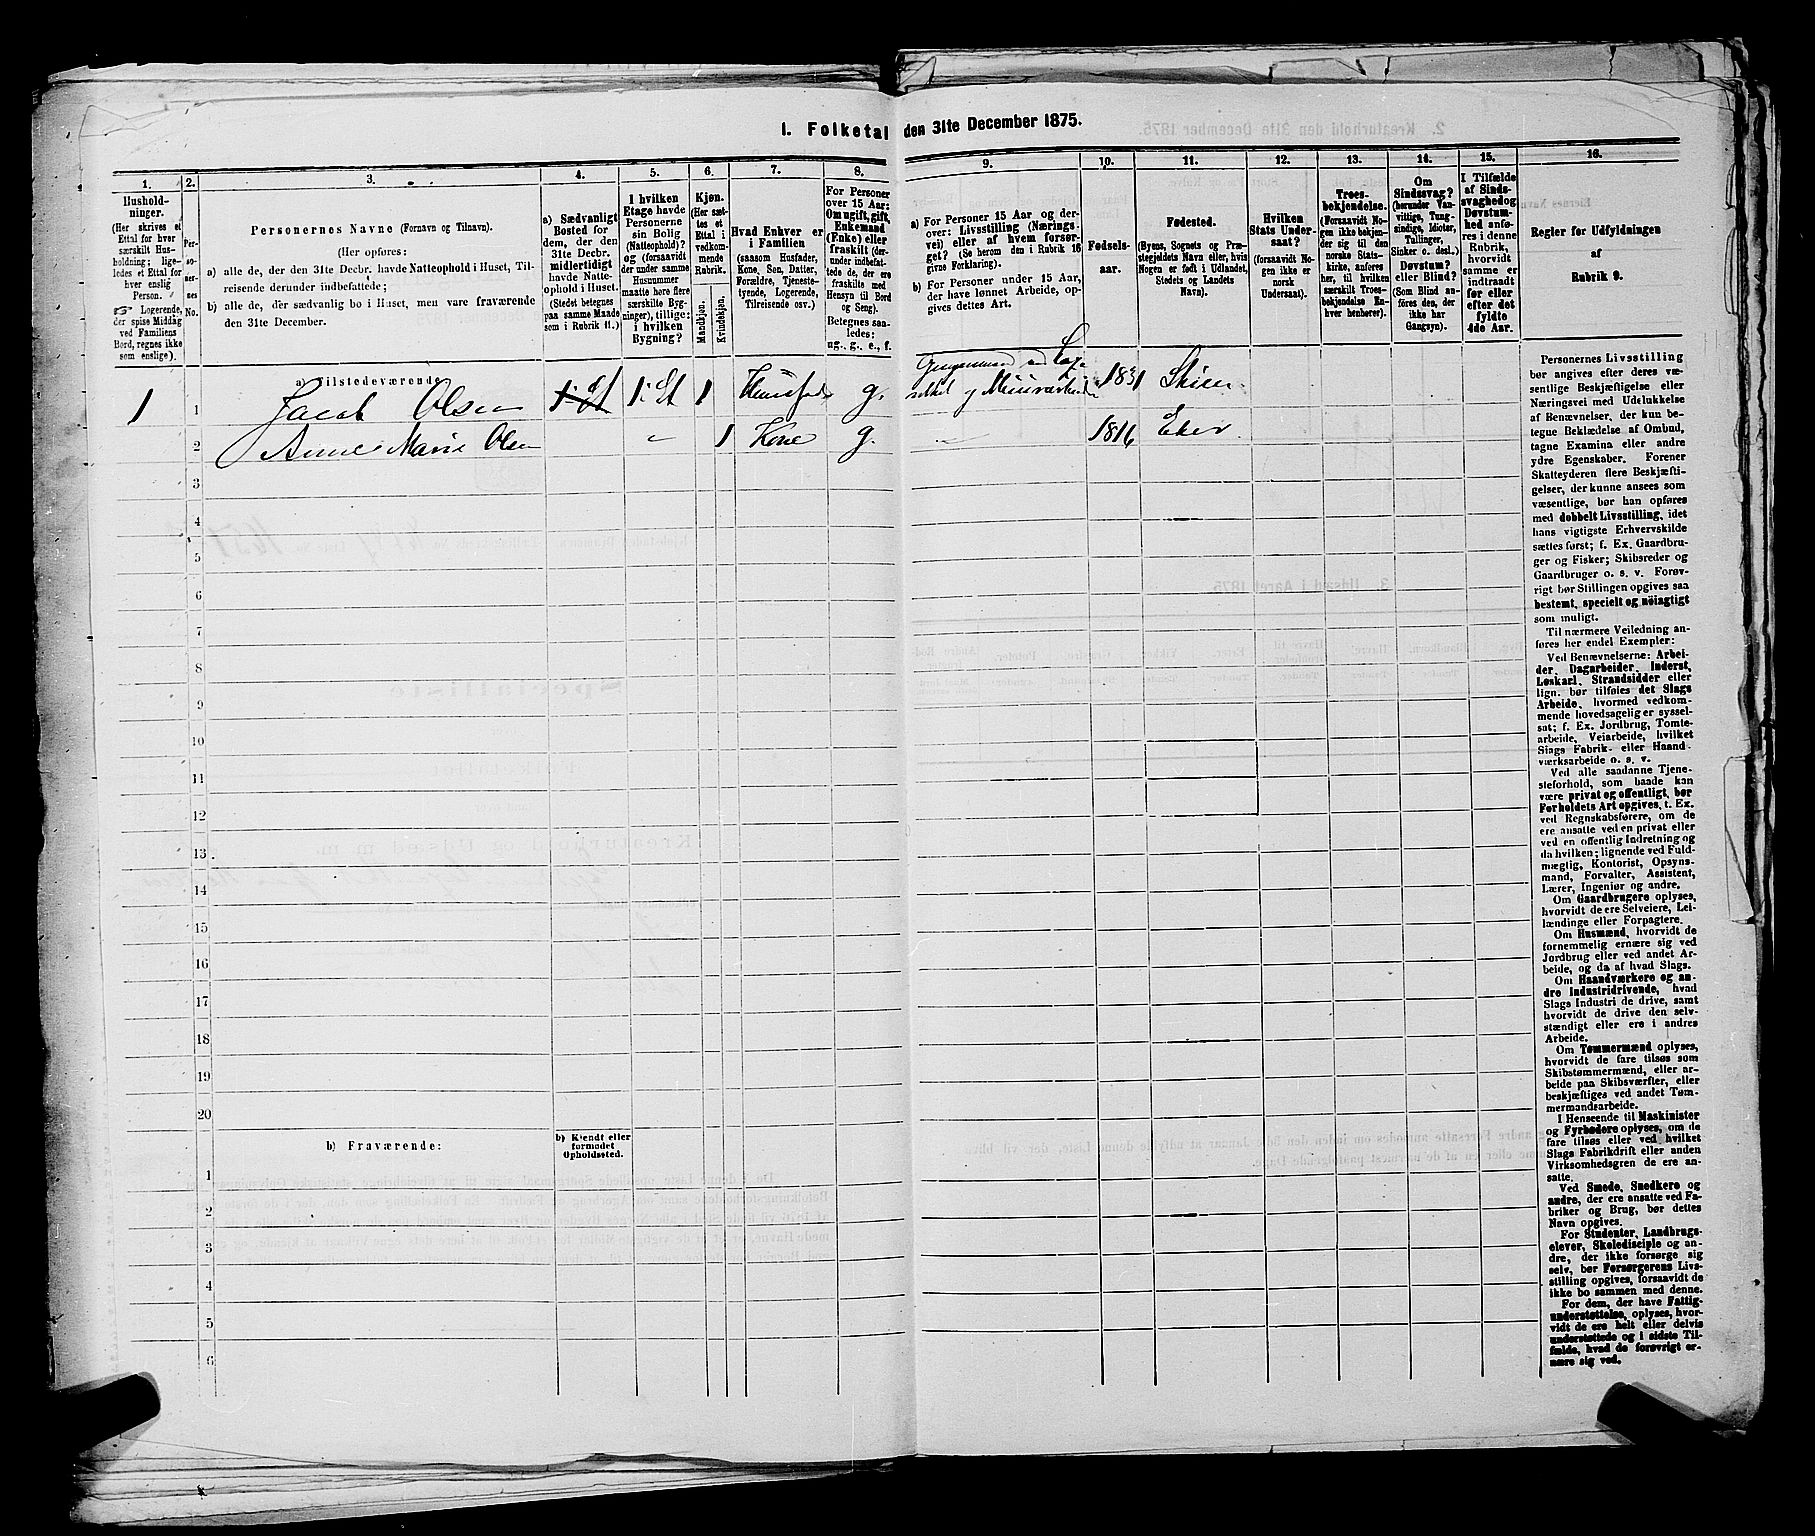 1. Folketal den 31te December 1875.
1.
Hushold-
ninger.
(Her skrives et
Ettal for hver
særskilt Hus-
holdning; lige-
ledes et Ettal for
hver enslig
Person.
Logerende,
der spise Middag
ved Familiens
Bord, regnes ikke
som enslige).
2.
Per-
so-
ner-
nes
No.
3.
Personernes Navne (Fornavn og Tilnavn).
(Her opføres:
a) alle de, der den 31te Decbr. havde Natteophold i Huset, Til-
reisende derunder indbefattede;
b) alle de, der sædvanlig bo i Huset, men vare fraværende
den 31te December.
4.
a) Sædvanligt
Bosted for
dem, der den
31te Decbr.
midlertidigt
havde Natte-
ophold i Huset.
(Stedet betegnes
paa samme Maade
som i Rubrik 11.)
5.
I hvilken
Etage havde
Personerne
sin Bolig
(Natteophold)?
og (forsaavidt
der under samme
Husnummer
maatte høre flere
særskilte Byg-
ninger), tillige:
i hvilken
Bygning?
6.
Kjøn.
(Her sæt-
tes et
Ettal i
vedkom-
mende
Rubrik.
Mandkjøn.
Kvindekjøn.
7.
Hvad Enhver er
i Familien
(saasom Husfader,
Kone, Søn, Datter,
Forældre, Tjeneste-
tyende, Logerende,
Tilreisende osv.)
8.
For Personer
over 15 Aar:
Om ugift, gift,
Enkemand
(Enke) eller
fraskilt (der-
under indbefat-
tede de, der ere
fraskilte med
Hensyn til Bord
og Seng).
Betegnes saa-
ledes:
ug., g., e., f.
9.
a) For Personer 15 Aar og der-
over: Livsstilling (Nærings-
vei) eller af hvem forsør-
get? (Se herom den i Rubrik 16
givne Forklaring).
b) For Personer under 15 Aar,
der have lønnet Arbeide, op-
gives dettes Art.
10.
Fødsels-
aar.
11.
Fødested.
(Byens, Sognets og Præ-
stegjeldets Navn eller, hvis
Nogen er født i Udlandet,
Stedets og Landets
Navn).
12.
Hvilken
Stats Under-
saat?
(forsaavidt No-
gen ikke er
norsk
Undersaat).
13.
Troes-
bekjendelse.
(Forsaavidt No-
gen ikke bekjen-
der sig til den
norske Stats-
kirke, anføres
her, til hvilken
særskilt Troes-
bekjendelse En-
hver henhører).
14.
Om
Sindssvag?
(herunder Van-
vittige, Tung-
sindige, Idioter,
Tullinger,
Sinker o. desl.)
Døvstum?
eller Blind?
(Som Blind an-
føres den, der
ikke har
Gangsyn).
15.
I Tilfælde
af Sinds-
svaghed og
Døvstum-
hed anfø-
res i denne
Rubrik,
hvorvidt
samme er
indtraadt
før eller
efter det
fyldte
4de Aar.
16.
Regler for Udfyldningen
af
Rubrik 9.
a) Tilstedeværende
1 1 Jacob Olsen 1. Et 1. Et 1 Husfader g. 1831 Skien
2 Anne Marie Olsen „ 1 Kone g. „ 1816 Eker
3
4
5
6
7
8
9
10
11
12
13
14
15
16
17
18
19
20
b) Fraværende:
b) Kjendt eller
formodet
Opholdssted.
1
2
3
4
5
6
Personernes Livsstilling
bør angives efter deres væ-
sentlige Beskjæftigelse eller
Næringsvei med Udelukkelse
af Benævnelser, der kun be-
tegne Beklædelse af Ombud,
tagne Examina eller andre
ydre Egenskaber. Forener
Skatteyderen flere Beskjæfti-
gelser, der kunne ansees som
væsentlige, bør han opføres
med dobbelt Livsstilling, idet
hans vigtigste Erhvervskilde
sættes først; f. Ex. Gaardbru-
ger og Fisker; Skibsreder og
Gaardbruger o. s. v. Forøv-
rigt bør Stillingen opgives saa
bestemt, specielt og nøiagtigt
som muligt.
Til nærmere Veiledning an-
føres her endel Exempler:
Ved Benævnelserne: Arbei-
der, Dagarbeider, Inderst,
Løskarl, Strandsidder eller
lign. bør tilføies det Slags
Arbeide, hvormed vedkom-
mende hovedsagelig er syssel-
sat; f. Ex. Jordbrug, Tomte-
arbeide, Veiarbeide, hvilket
Slags Fabrik- eller Haand-
værksarbeide o. s. v.
Ved alle saadanne Tjene-
steforhold, som baade kan
være privat og offentligt, bør
Forholdets Art opgives, t. Ex.
ved Regnskabsførere, om de
ere ansatte ved en privat eller
ved en offentlig Indretning og
da hvilken; lignende ved Fuld-
mægtig, Kontorist, Opsyns-
mand, Forvalter, Assistent,
Lærer, Ingeniør og andre.
Om Gaardbrugere oplyses,
hvorvidt de ere Selveiere, Lei-
lændinge eller Forpagtere.
Om Husmænd, hvorvidt de
fornemmelig ernære sig ved
Jordbrug eller ved andet Ar-
beide, og da af hvad Slags.
Om Haandværkere og an-
dre Industridrivende, hvad
Slags Industri de drive, samt
hvorvidt de drive den selv-
stændigt eller ere i andres
Arbeide.
Om Tømmermænd oplyses,
hvorvidt de fare tilsøs som
Skibstømmermænd, eller ar-
beide paa Skibsværfter, eller
beskjæftiges ved andet Tøm-
mermandsarbeide.
I Henseende til Maskinister
og Fyrbødere oplyses, om de
fare tilsøs eller ved hvilket
Slags Fabrikdrift eller anden
Virksomhedsgren de ere an-
satte.
Ved Smede, Snedkere og
andre, der ere ansatte ved Fa-
briker og Brug, bør dettes
Navn opgives.
For Studenter, Landbrugs-
elever, Skoledisciple og an-
dre, der ikke forsørge sig
selv, bør Forsørgerens Livs-
stilling opgives, forsaavidt de
ikke bo sammen med denne.
For dem, der have Fattig-
understøttelse, oplyses, hvor-
vidt de ere helt eller delvis
understøttede og i sidste Til-
fælde, hvad de forøvrigt er-
nære sig ved.